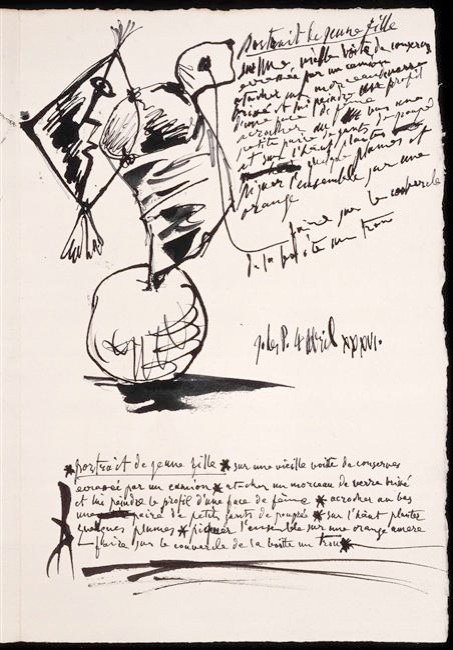 portrait de jeune fille
vieille boite de conserves
ecrasée par un camion
atacher un morceau verre
brisé et lui peindre profil
d'une face de fame
acrocher au bas une
petite paire de gants de poupée
et sur l'haut planter
quelque plumes et
piquer l'ensemble sur une
orange
faire sur le couvercle
de la boite un trou
les P. 4 Avril XXXVI.
*portrait de jeune fille * sur une vieille boite de conserves
ecrasée par un camion * atacher un morceau de verre brisé
et lui peindre le profil d'une face de fame * acrocher au bas
une paire de petits gants de poupée * sur l'haut planter
quelques plumes * piquer l'ensemble sur une orange amere
faire sur le couvercle de la boite un trou *